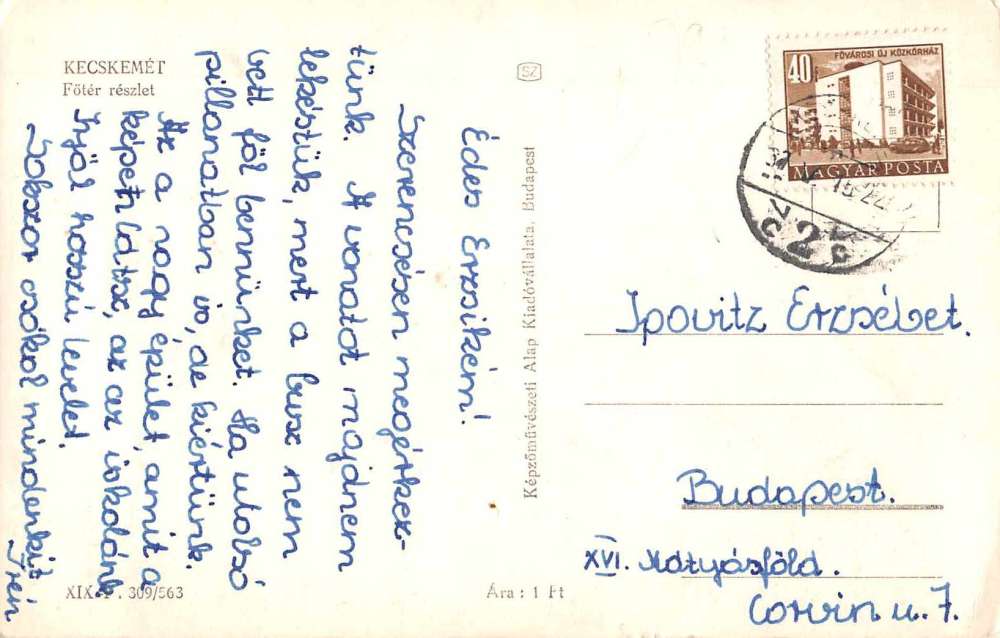 KECSKEMÉT
Főtér részlet
SZ
Édes Erzsikém!
Szerencsésen megérkez-
tünk. A vonatot majdnem
lekéstük, mert a busz nem
vett föl bennünket. Ha utolsó
pillanatban is, de kiértünk.
Az a nagy épület, amit a
képen látsz, az az iskolánk
Írjál hosszú levelet.
Sokszor csókol mindenkit
Irén
XIX. P. 309/563
Ára : 1 Ft
Képzőművészeti Alap Kiadóvállalata, Budapest
FŐVÁROSI ÚJ KÖZKÓRHÁZ
40f
MAGYAR POSTA
2
Ipovitz Erzsébet.
Budapest.
XVI. Mátyásföld.
Corvin u. 7.